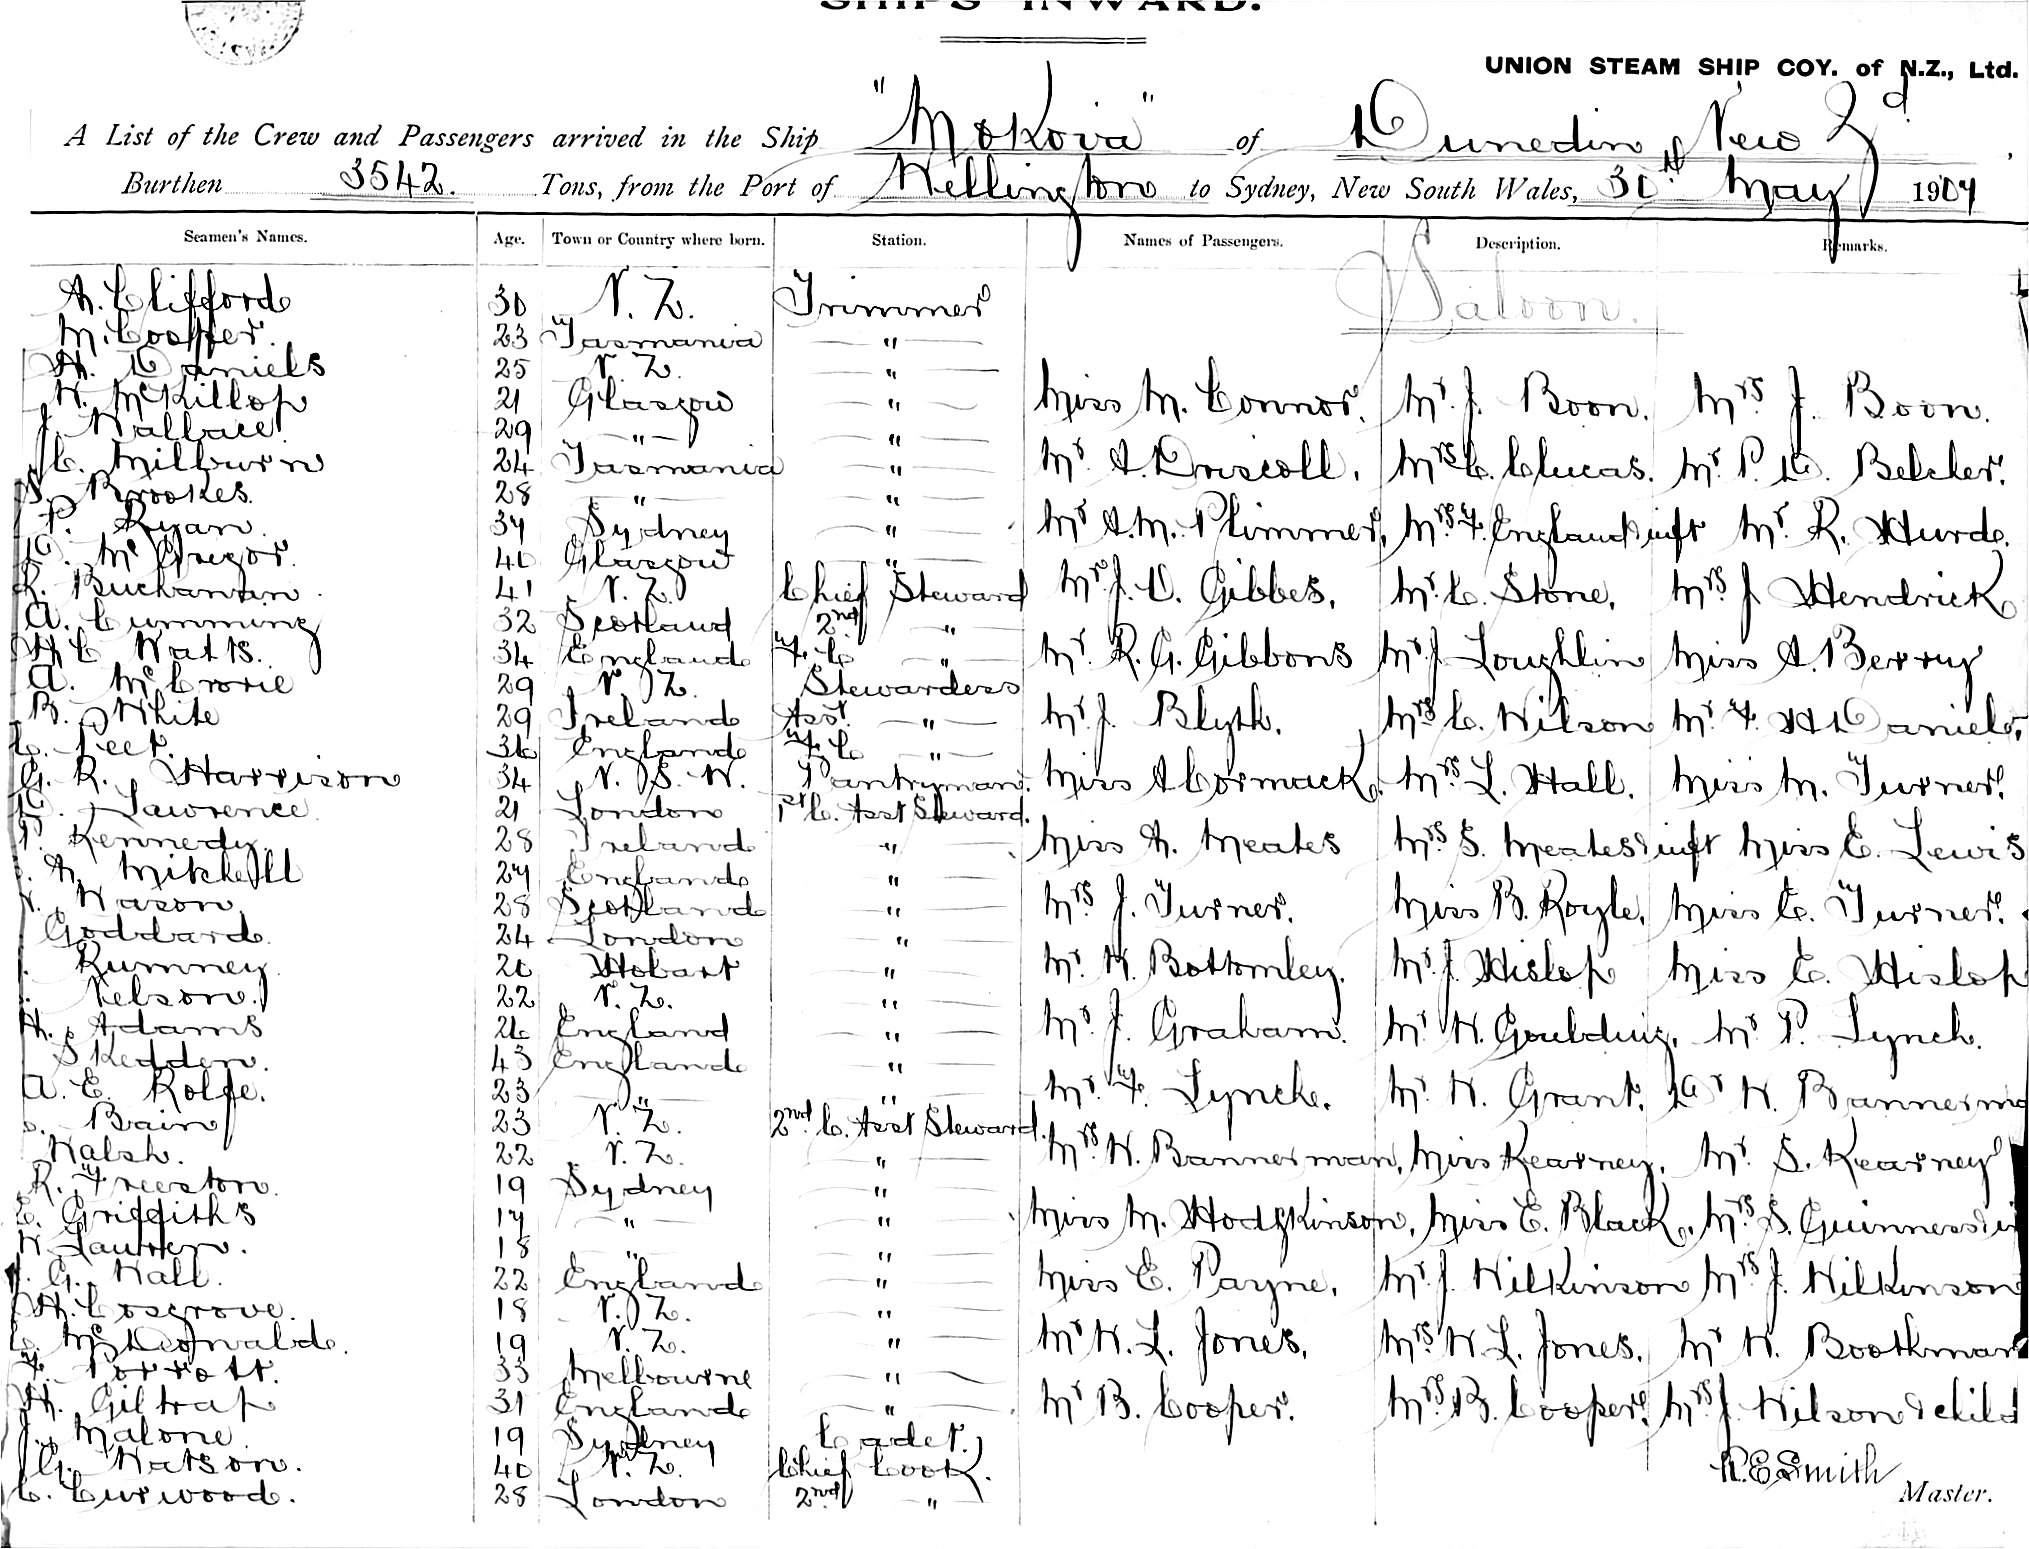 SHIPS INWARD.
UNION STEAM SHIP COY. of N.Z., Ltd.
A List of the Crew and Passengers arrived in the Ship "Mokoia" of Dunedin, New Zd
Burthen 3542. Tons, from the Port of Wellington to Sydney, New South Wales, 30th May 1907
Seamen's Names. Age. Town or Country where born. Station. Names of Passengers. Description. Remarks.
Saloon.
A. Clifford 30 N. Z. Trimmer
M. Cooper. 23 Tasmania — " —
H. Daniels 25 N. Z. — " —
N. McKillop 21 Glasgow — " — Miss M. Connor. Mr. J. Boon. Mrs J. Boon.
J. Wallace. 29 — " — — " —
C. Milburn 24 Tasmania — " — Mr. A. Driscoll. Mrs C. Clucas. Mr. P. D. Belcher.
S. Brookes. 28 — " — — " —
P. Ryan. 37 Sydney — " — Mr A. M. Plimmer, Mrs F. England & inft Mr. R. Hurd.
D. McGregor. 40 Glasgow — " —
R. Buchanan. 41 N. Z. Chief Steward Mr. J. V. Gibbes. Mr. C. Stone. Mrs J Hendrick
A. Cumming 32 Scotland 2nd — " —
H C Watts. 34 England F. C — " — Mr. R. G. Gibbons Mr. J Loughlin Miss A. Berry
A. McCrorie 29 N. Z. Stewardess
B. White 29 Ireland Asst. — " — Mr J. Blyth. Mrs C. Wilson Mr. F. H Daniels,
C. Peet. 36 England F. C — " —
G. R. Harrison 34 N. S. W. Pantryman. Miss A Cormack. Mrs L. Hall. Miss M. Turner.
D. Lawrence. 21 London 1st C. Asst Steward.
P. Kennedy. 28 Ireland — " — Miss A. Meates Mrs S. Meates & inft Miss E. Lewis
A. Mitchell 27 England — " —
Wason 28 Scotland — " — Mrs J. Turner. Miss B. Royle. Miss C. Turner.
Goddard. 24 London — " —
Rumney. 20 Hobart — " — Mr. W. Bottomley. Mr. J. Hislop Miss C. Hislop
Nelson. 22 N. Z. — " —
H. Adams 26 England — " — Mr. J. Graham. Mr W. Goulding. Mr P. Lynch.
Skedden. 43 England — " —
A. E. Rolfe. 23 — " — — " — Mr. F. Lynch. Mr. W. Grant. Dr W. Bannerma
Bain 23 N. Z. 2nd C. Asst Steward.
Walsh. 22 N. Z. — " — Mrs W. Bannerman, Miss Kearney. Mr. S. Kearney
R. Freeston. 19 Sydney — " —
E. Griffiths 17 — " — — " — Miss M. Hodgkinson, Miss E. Black. Mrs S. Guinness & in
18 — " — — " —
G. Hall. 22 England — " — Miss E. Payne. Mr J. Wilkinson Mrs J. Wilkinson
H. Cosgrove. 18 N. Z. — " —
C. McDonald. 19 N. Z. — " — Mr W. L. Jones. Mrs W. L. Jones. Mr W. Boothman
F. Porrott. 33 Melbourne — " —
H. Giltrap 31 England — " — Mr B. Cooper. Mrs B. Cooper. Mrs J. Wilson & child
J. Malone. 19 Sydney Cadet.
G. Watson. 40 N. Z. Chief Cook.
C. Curwood. 28 London 2nd "
R. E. Smith
Master.